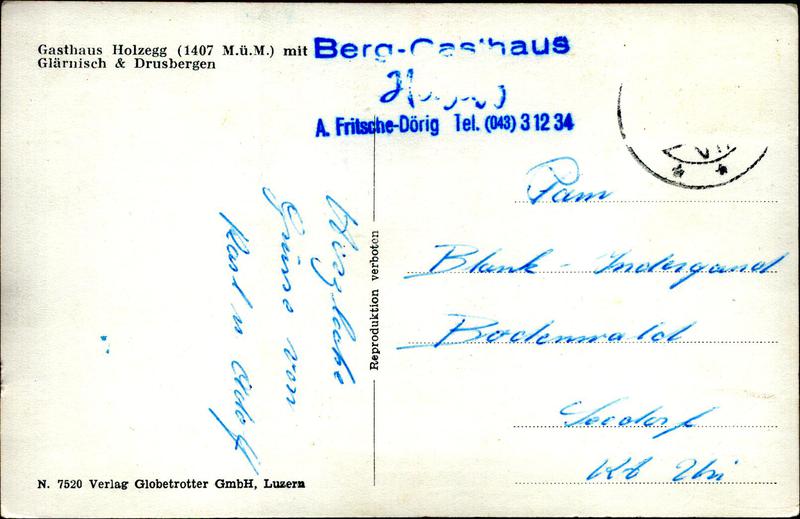 Gasthaus Holzegg (1407 M.ü.M.) mit
Glärnisch & Drusbergen
Berg-Gasthaus
A. Fritsche-Dörig Tel. (043) 3 12 34
Fam
Blank - Indergand
Bodenwald
Seedorf
Kt Uri
Reproduktion verboten
Grüsse von
Karl u
N. 7520 Verlag Globetrotter GmbH, Luzern